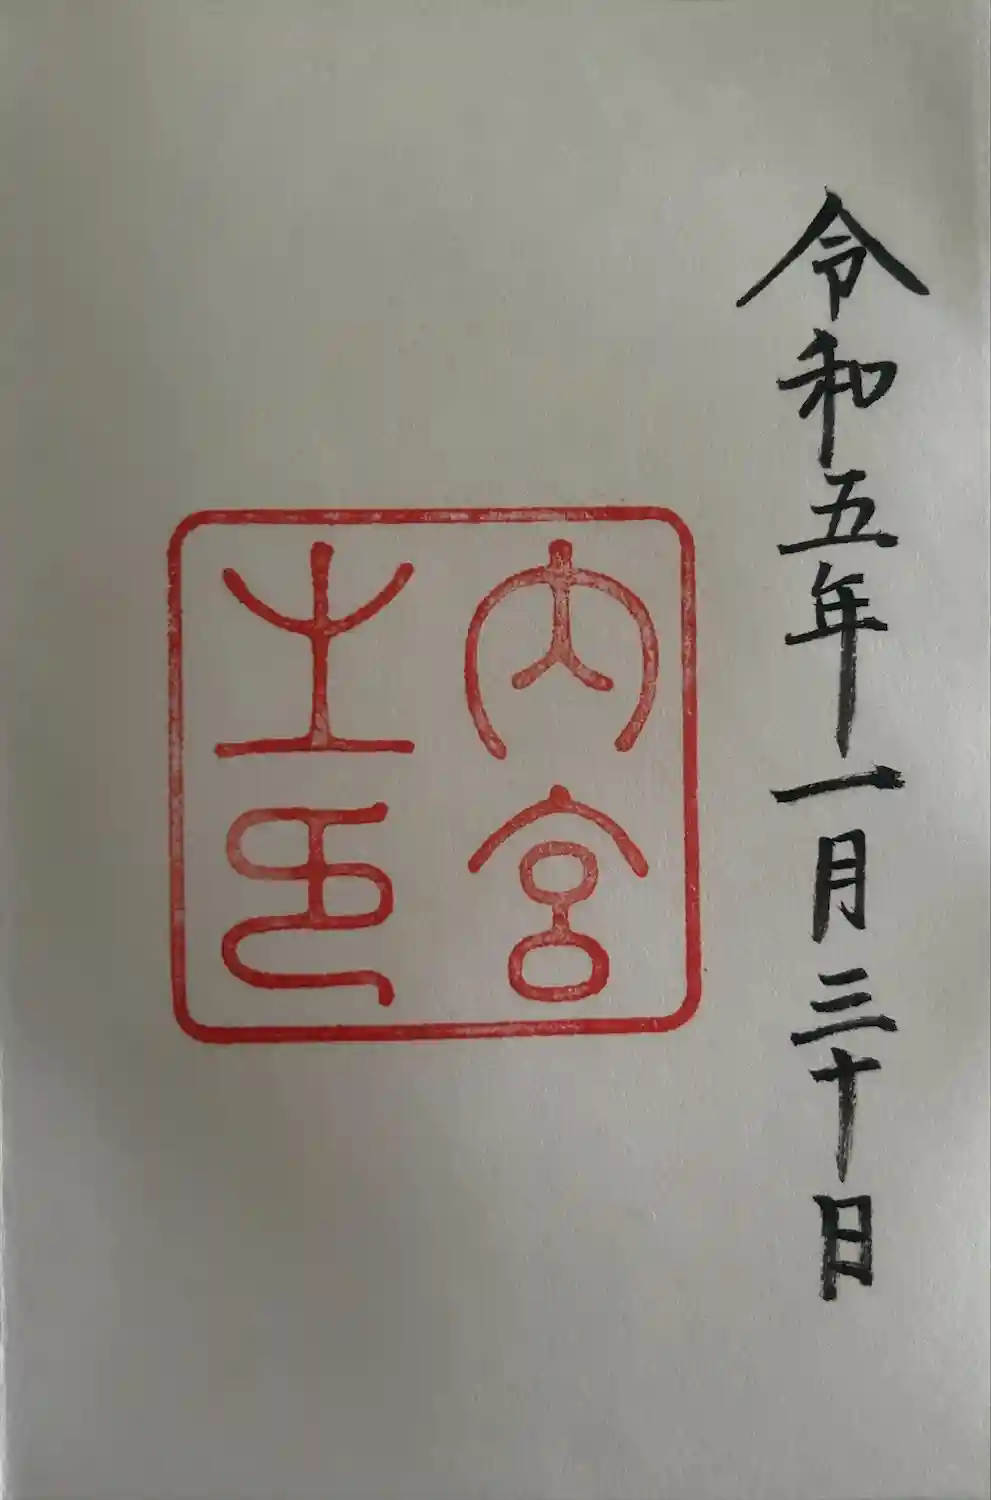 令和五年一月三十日
内宮
之印